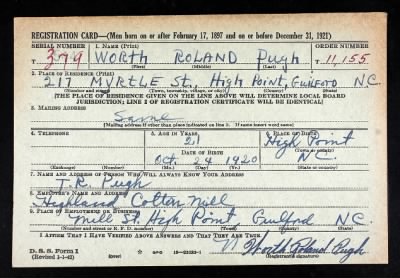 REGISTRATION CARD—(Men born on or after February 17, 1897 and on or before December 31, 1921)
SERIAL NUMBER 1. NAME (Print) ORDER NUMBER
T 379 WORTH ROLAND Pugh T 11,155
(First) (Middle) (Last)
2. PLACE OF RESIDENCE (Print)
217 MYRTLE St, High Point, GUILFORD N.C.
(Number and street) (Town, township, village, or city) (County) (State)
[THE PLACE OF RESIDENCE GIVEN ON THE LINE ABOVE WILL DETERMINE LOCAL BOARD
JURISDICTION; LINE 2 OF REGISTRATION CERTIFICATE WILL BE IDENTICAL]
3. MAILING ADDRESS
Same
(Mailing address if other than place indicated on line 2. If same insert word same)
4. TELEPHONE 5. AGE IN YEARS 6. PLACE OF BIRTH
21 High Point
DATE OF BIRTH (Town or county)
Oct. 24 1920 N.C.
(Exchange) (Number) (Mo.) (Day) (Yr.) (State or country)
7. NAME AND ADDRESS OF PERSON WHO WILL ALWAYS KNOW YOUR ADDRESS
T.R. Pugh
8. EMPLOYER'S NAME AND ADDRESS
Highland Cotton Mill
9. PLACE OF EMPLOYMENT OR BUSINESS
Mill St. High Point Guilford N.C.
(Number and street or R. F. D. number) (Town) (County) (State)
I AFFIRM THAT I HAVE VERIFIED ABOVE ANSWERS AND THAT THEY ARE TRUE.
D. S. S. Form 1
(Revised 1-1-42) (over) Worth Roland Pugh
(Registrant's signature)